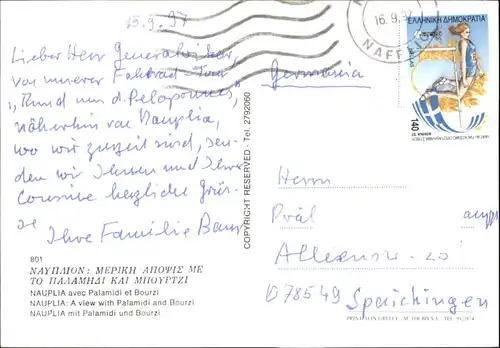 15.9.97
Lieber Herr Generalvikar,
von unserer Fahrrad-Tour
"Rund um d. Peloponnes",
näherhin von Nauplia,
wo wir zurzeit sind, sen-
den wir Ihnen und Ihrer
Cousine herzliche Grüs-
se Ihre Familie
801
ΝΑΥΠΛΙΟΝ: ΜΕΡΙΚΗ ΑΠΟΨΙΣ ΜΕ
ΤΟ ΠΑΛΑΜΗΔΙ ΚΑΙ ΜΠΟΥΡΤΖΙ
NAUPLIA avec Palamidi et Bourzi
NAUPLIA: A view with Palamidi and Bourzi
NAUPLIA mit Palamidi und Bourzi
COPYRIGHT RESERVED - Tel. 2792060
16.9.97
ΕΛΛΗΝΙΚΗ ΔΗΜΟΚΡΑΤΙΑ
HELLAS
140
Germania
Herrn
Präl
Alleenstr. 20
D 78549 Spaichingen